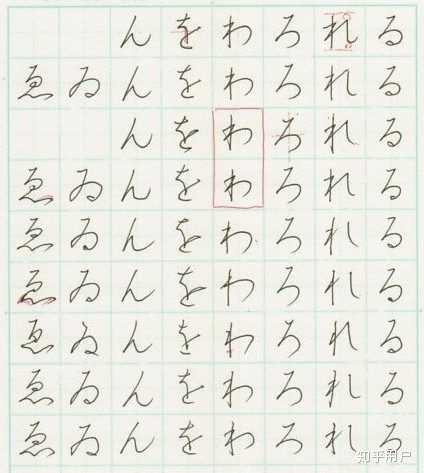 るるるるるるるるる
れれれれれれれれれ
ろろろろろろろろろ
わわわわわわわわわ
ををををををををを
んんんんんんんんん
ゐゐゐゐゐゐゐ
ゑゑゑゑゑゑゑ
知乎用户